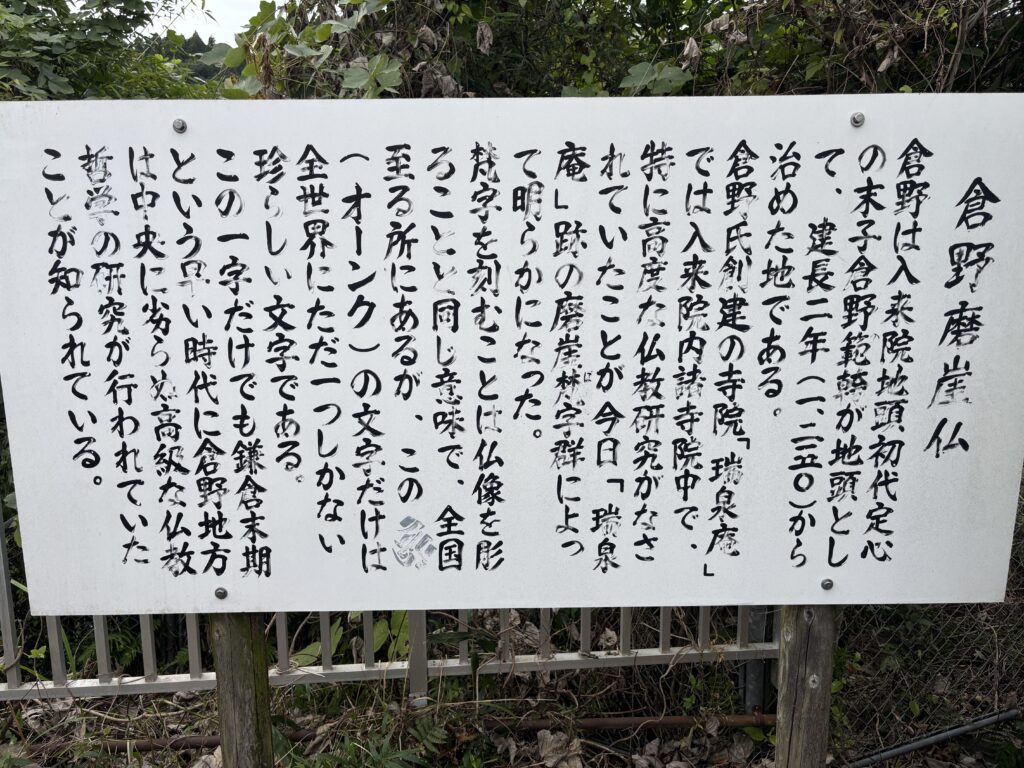 倉野磨崖仏
倉野は入来院地頭初代定心
の末子倉野範幹が地頭とし
て、建長二年（一、二五〇）から
治めた地である。
倉野氏創建の寺院「瑞泉庵」
では入来院内諸寺院中で、
特に高度な仏教研究がなさ
れていたことが今日「瑞泉
庵」跡の磨崖梵字群によっ
て明らかになった。
梵字を刻むことは仏像を彫
ることと同じ意味で、全国
至る所にあるが、この
（オーンク）の文字だけは
全世界にただ一つしかない
珍らしい文字である。
この一字だけでも鎌倉末期
という早い時代に倉野地方
は中央に劣らぬ高級な仏教
哲学の研究が行われていた
ことが知られている。